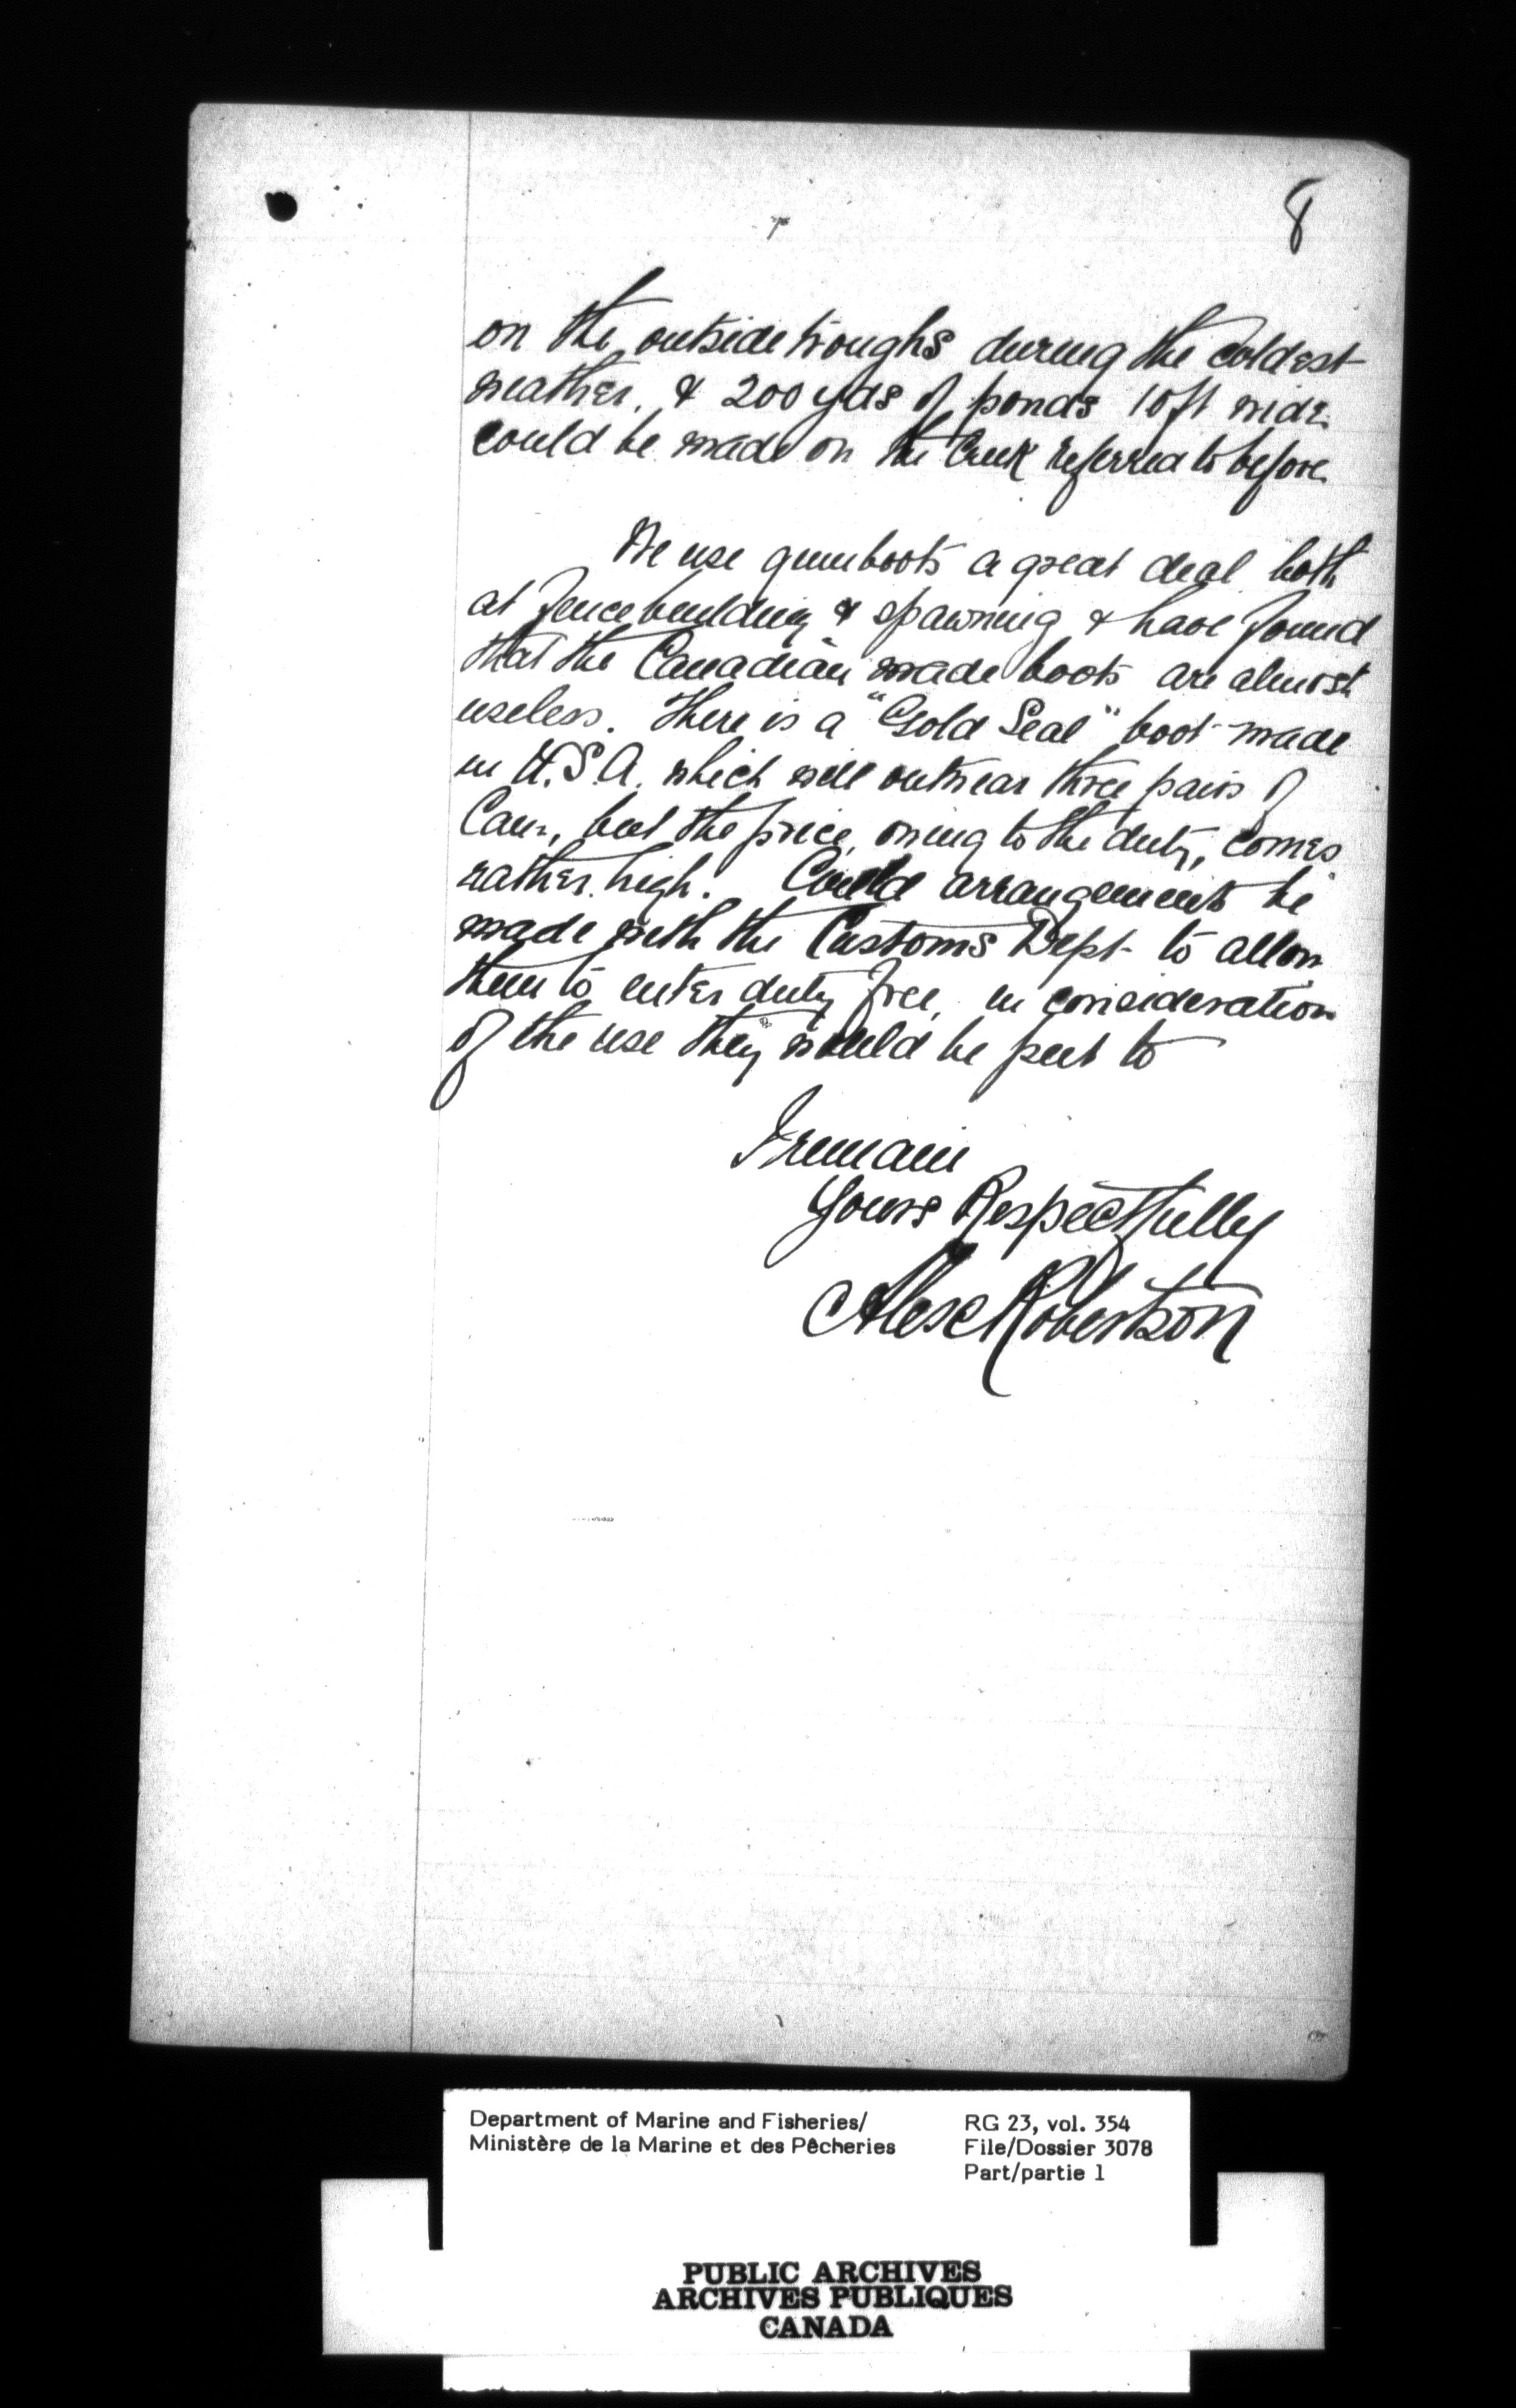 8
on the outside troughs during the coldest
weather. & 200 yds of ponds 10ft wide
could be made on the Creek referred to before
We use gumboots a great deal both
at fence building & spawning & have found
that the Canadian made boots are almost
useless. There is a "Gold Seal" boot made
in U.S.A. which will outwear three pairs of
Can., but the price, owing to the duty, comes
rather high. Could arrangements be
made with the Customs Dept to allow
them to enter duty free, in consideration
of the use they would be put to
I remain
Yours Respectfully
Alex Robertson
Department of Marine and Fisheries/
Ministère de la Marine et des Pêcheries
RG 23, vol. 354
File/Dossier 3078
Part/partie 1
PUBLIC ARCHIVES
ARCHIVES PUBLIQUES
CANADA